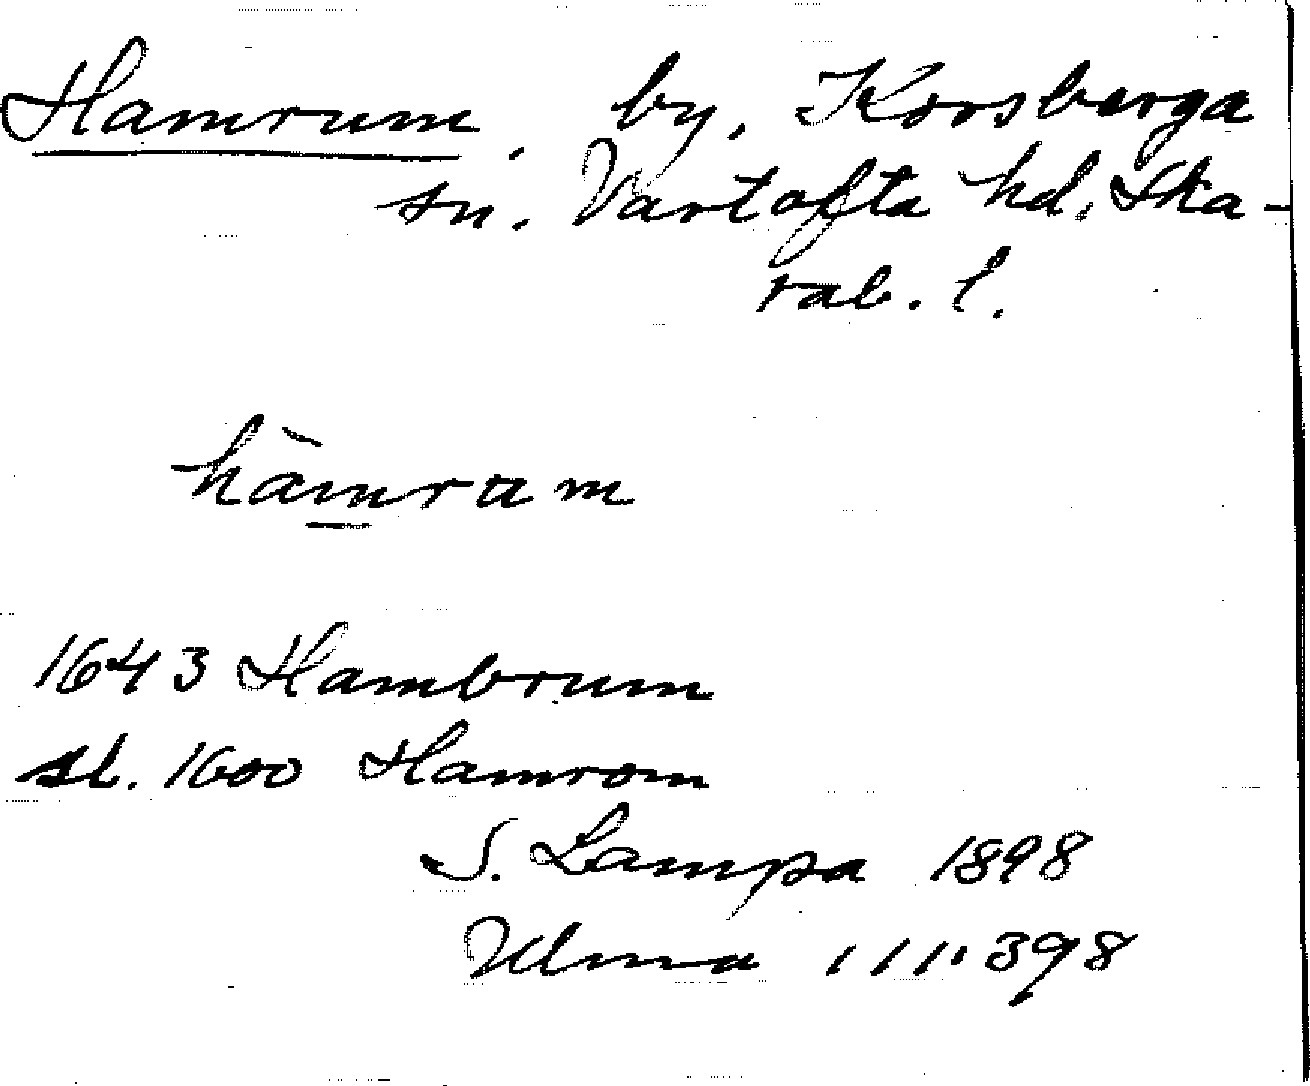 Hamrum, by, Korsberga
sn. Vartofta hd, Ska-
rab. l.
hàmram
1643 Hambrum
sl. 1600 Hamrom
S. Lampa 1898
Ulma 111:398